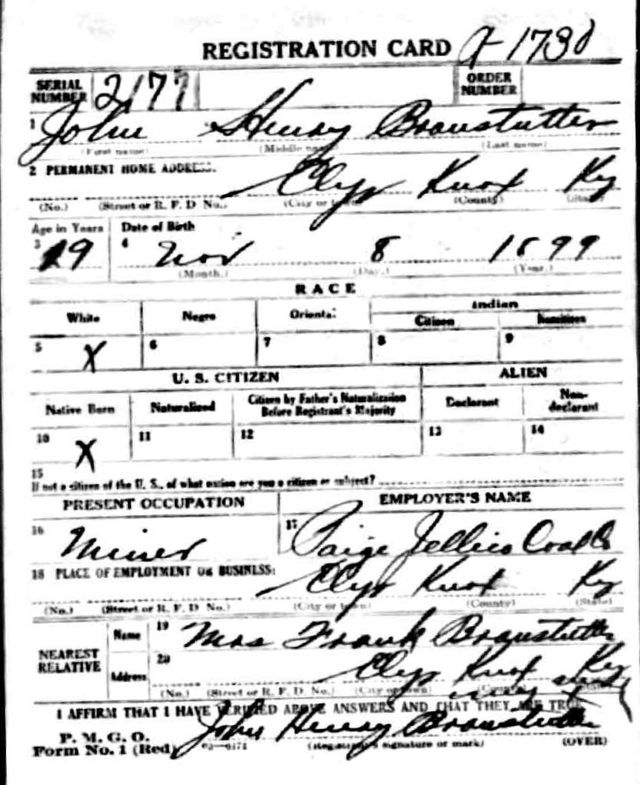 REGISTRATION CARD A-1730
SERIAL NUMBER 2177 ORDER NUMBER
1 John Henry Branstutter
(First name) (Middle name) (Last name)
2 PERMANENT HOME ADDRESS:
Elys Knox Ky
(No.) (Street or R. F. D. No.) (City or town) (County) (State)
Age in Years Date of Birth
3 19 4 Nov 8 1899
(Month.) (Day.) (Year.)
RACE
White Negro Oriental Indian
Citizen
5 X 6 7 8 9
U. S. CITIZEN ALIEN
Native Born Naturalized Citizen by Father's Naturalization Before Registrant's Majority Declarant Non-declarant
10 X 11 12 13 14
15
If not a citizen of the U. S., of what nation are you a citizen or subject?
PRESENT OCCUPATION EMPLOYER'S NAME
16 Miner 17 Paige Jellico Coal Co
18 PLACE OF EMPLOYMENT OR BUSINESS:
Elys Knox Ky
(No.) (Street or R. F. D. No.) (City or town) (County) (State)
NEAREST RELATIVE Name 19 Mrs Frank Branstutter
Address 20 Elys Knox Ky
(No.) (Street or R. F. D. No.) (City or town) (County)
I AFFIRM THAT I HAVE VERIFIED ABOVE ANSWERS AND THAT THEY ARE TRUE
P. M. G. O.
Form No. 1 (Red) John Henry Branstutter
(Registrant's signature or mark) (OVER)